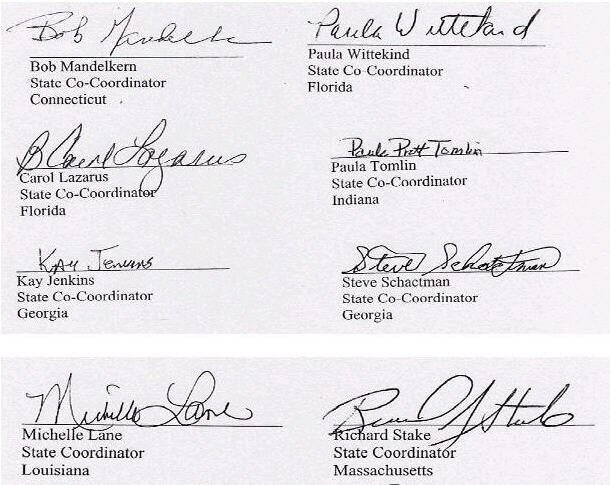 Bob Mandelkern
Bob Mandelkern
State Co-Coordinator
Connecticut
Paula Wittekind
Paula Wittekind
State Co-Coordinator
Florida
B Carol Lazarus
Carol Lazarus
State Co-Coordinator
Florida
Paula Pratt Tomlin
Paula Tomlin
State Co-Coordinator
Indiana
Kay Jenkins
Kay Jenkins
State Co-Coordinator
Georgia
Steve Schactman
Steve Schactman
State Co-Coordinator
Georgia
Michelle Lane
Michelle Lane
State Coordinator
Louisiana
Stake
Richard Stake
State Coordinator
Massachusetts